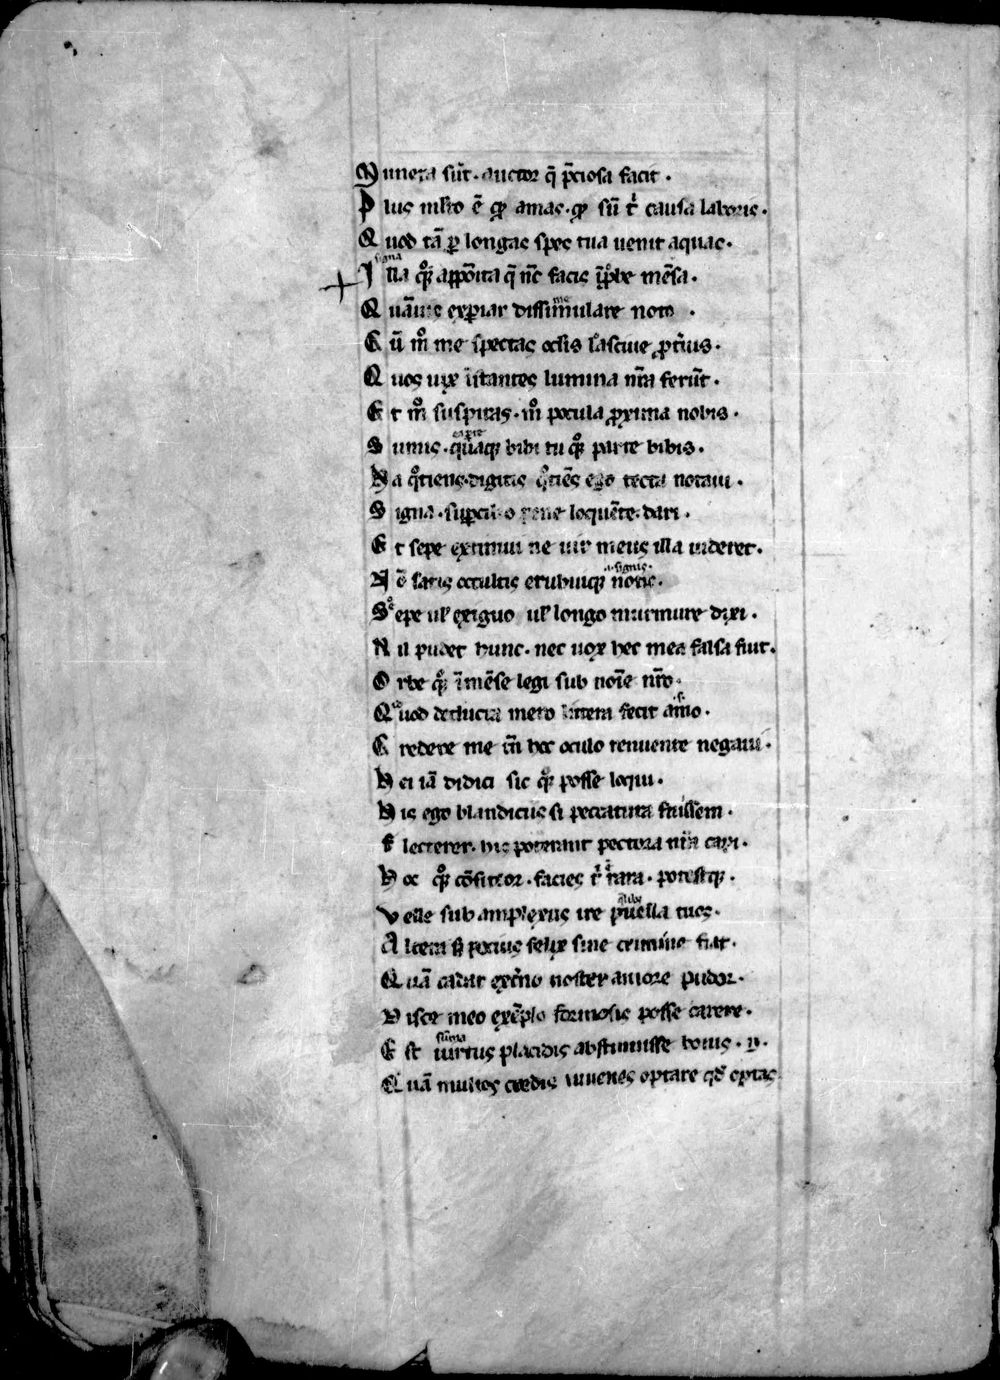 Munera sūt. auctor q̄ p̄ciosa facit.
Plus mlto ē qđ amas. qđ sū t̄ causa laboris.
Quod tā ꝑ longas spes tua uenit aquas.
signa
Illa qꝫ apposita q̄ nūc facis īprobe mēsa.
Quāuis experiar dissimulare noto.
me
Cū m̊ me spectas oclis lasciue proteruis.
Quos uix īstantes lumina nr̄a ferūt.
Et m̊ suspiras. m̊ pocula proxima nobis
Sumis. quāqꝫ bibi tu qꝫ parte bibis.
A qōtiens digitis qōtiēs ego tecta notaui.
Signa. suꝑcilio pene loquēte. dari.
Et sepe extimui ne uir meus illa uideret.
a. signis.
Nō satis occultis erubuiqꝫ notis.
Sepe ul̄ exiguo ul̄ longo murmure dixi.
Nil pudet hunc. nec uox hec mea falsa fuit.
Orbe qꝫ ī mēse legi sub noīe nr̄o.
Quod deducta mero littera fecit amo.
Credere me tn̄ hoc oculo renuente negaui.
Hei iā didici sic qꝫ posse loqui.
His ego blandiciis si peccatura fuissem.
Flecterer. his poterant pectora nr̄a capi.
Hoc qꝫ cōfiteor. facies t̄ rara. potestqꝫ.
Velle sub amplexus ire puella tuos.
Altera sꝫ pocius felix sine crimine fiat.
Quā cadat ext̄no noster amore pudor.
Disce meo exēplo formosis posse carere.
Est uirtus placidis abstinuisse bonis.
Quā multos credis iuuenes optare qđ optas